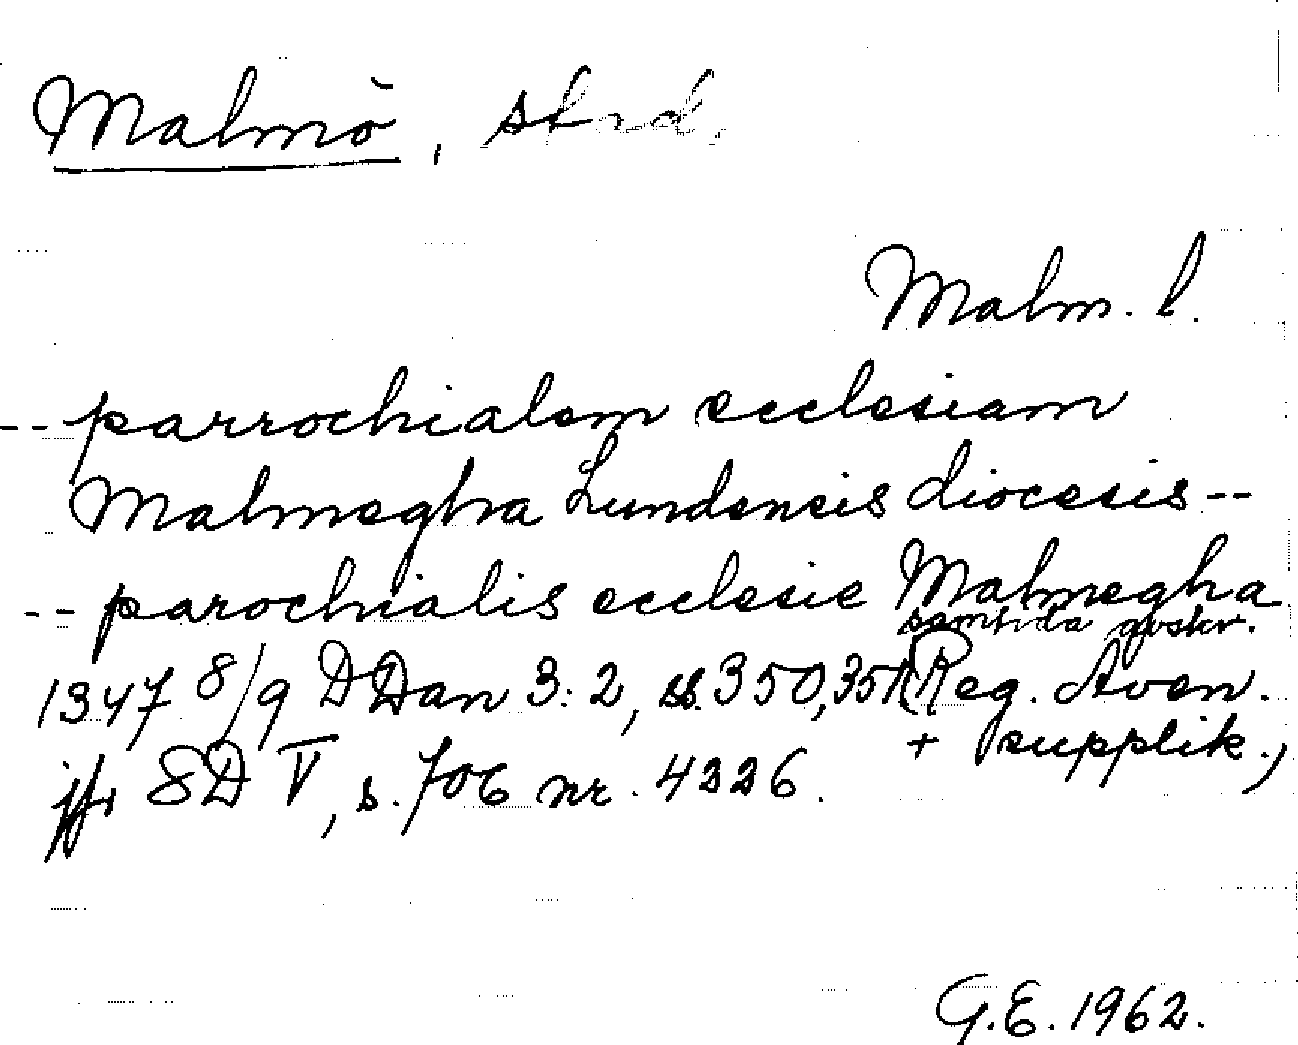 Malmö, stad.
Malm. l.
-- parrochialem ecclesiam
Malmeghra Lundensis diocesis --
-- parochialis ecclesie Malmeghra
samtida avskr.
1347 8/9 DDan 3:2, ss. 350, 351 (Reg. Aven.
+ supplik.)
jfr SD V, s. 706 nr. 4226.
G.E. 1962.